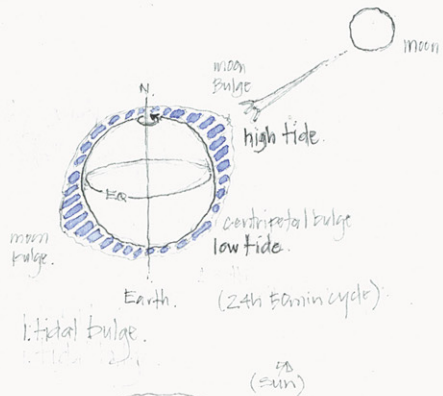 moon
moon
Bulge
N.
high tide.
EQ
centripetal bulge
low tide.
moon
bulge.
Earth.
(24h 50min cycle)
1. tidal bulge.
(sun)